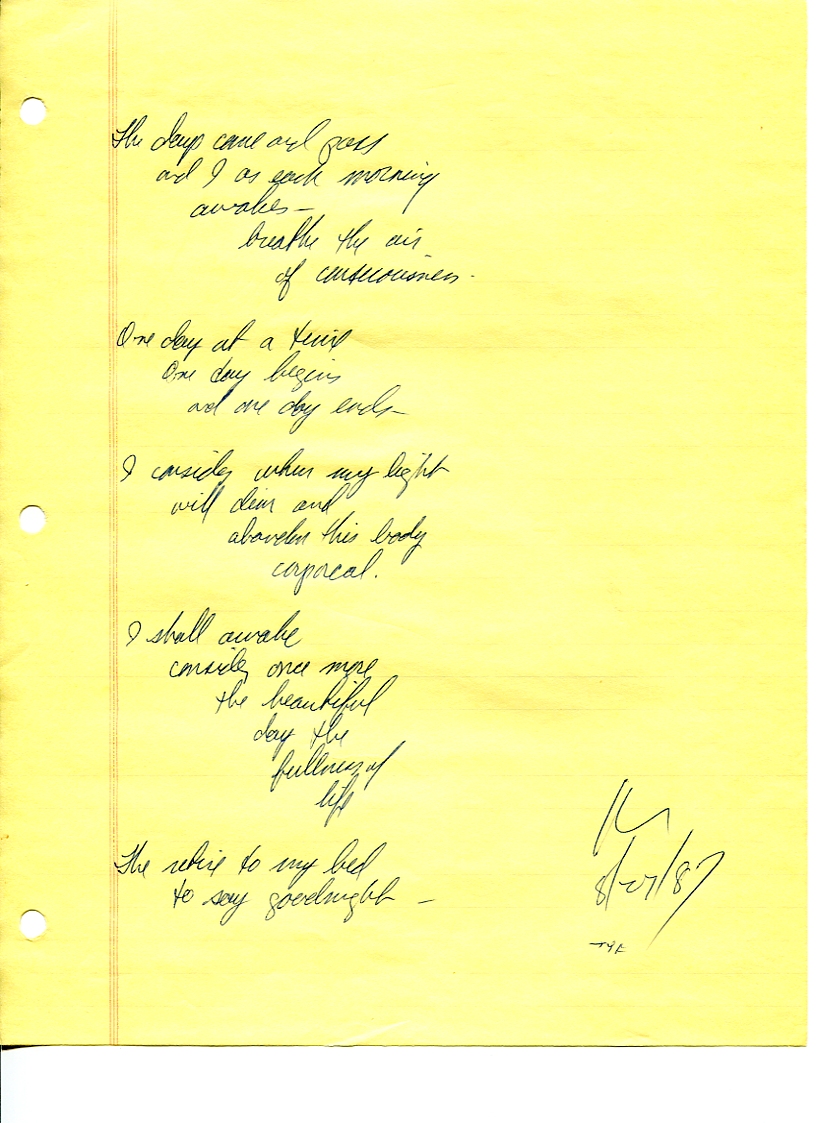 The days come and pass
and I as each morning
awakes –
breathe the air
of consciousness.
One day at a time
One day begins
and one day ends –
I consider when my light
will dim and
abandon this body
corporeal.
I shall awake
consider once more
the beautiful
day the
fullness of
life
The retire to my bed
to say goodnight –
8/27/87